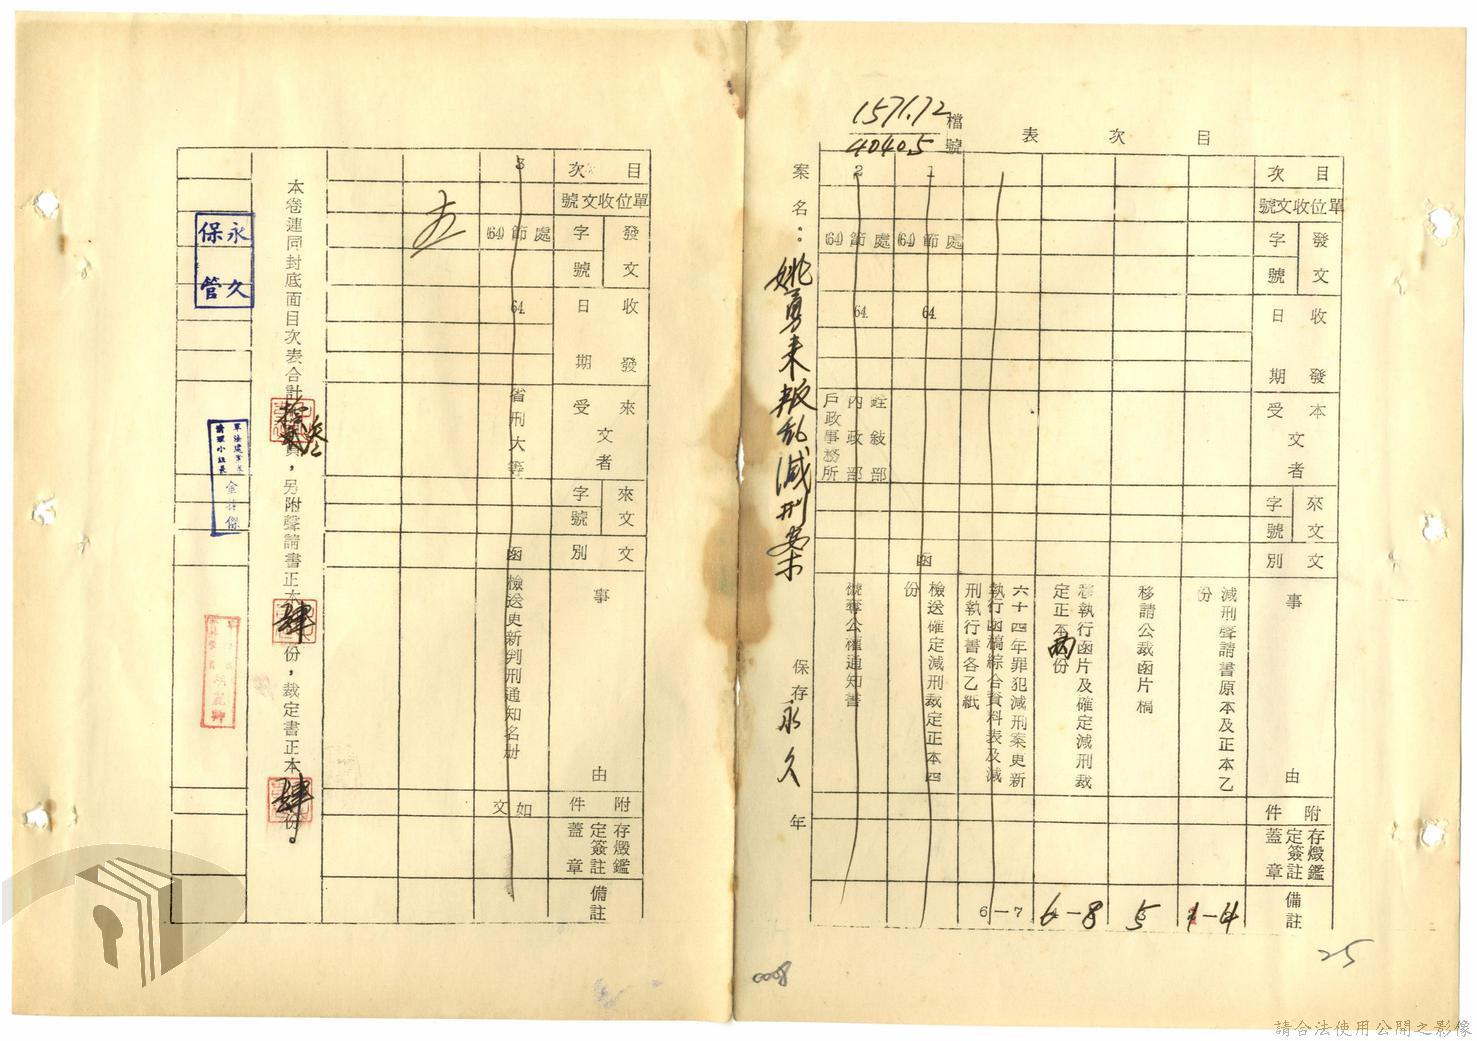 目次表
檔號
1571.72
40405
案名：姚勇来叛乱減刑案
保存永久年
目次
單位收文號
發文
字
號
收發
日期
本文
受者
來文
字
號
文別
事由
附件
存燬鑑定簽註蓋章
備註
減刑聲請書原本及正本乙份
1-4
移請公裁函片稿
5
移執行函片及確定減刑裁定正本兩份
6-8
六十四年罪犯減刑案更新執行函稿綜合資料表及減刑執行書各乙紙
6-7
1
(64)節處
64.
函
檢送確定減刑裁定正本四份
2
(64)節處
64.
銓敍部
內政部
戶政事務所
褫奪公權通知書
25
0008
目次
單位收文號
發文
字
號
收發
日期
來文
受者
來文
字
號
文別
事由
附件
存燬鑑定簽註蓋章
備註
3
(64)節處
64.
省刑大等
函
檢送更新判刑通知名册
如文
本卷連同封底面目次表合計頁，另附聲請書正本肆份，裁定書正本肆份。
永久保管
請合法使用公開之影像